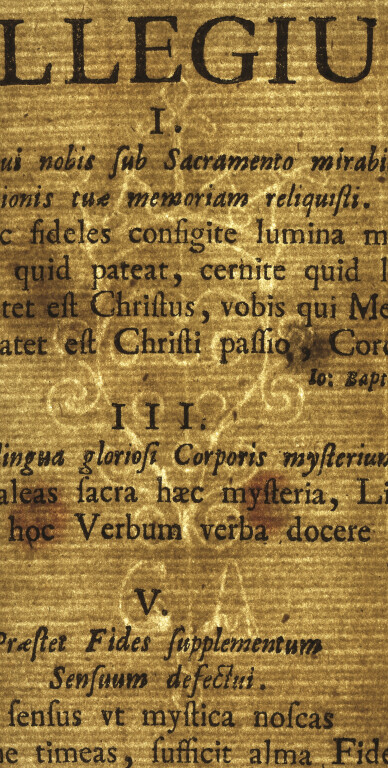 LLEGIU
I.
ui nobis ſub Sacramento mirabi
ionis tuæ memoriam reliquiſti.
c fideles configite lumina m
quid pateat, cernite quid l
tet eſt Chriſtus, vobis qui Me
atet eſt Chriſti paſſio, Cord
Io: Bapt
III.
lingua glorioſi Corporis myſterium
aleas ſacra hæc myſteria, Li
hoc Verbum verba docere
V.
Præſtet Fides ſupplementum
Senſuum defectui.
ſenſus vt myſtica noſcas
ne timeas, ſufficit alma Fide